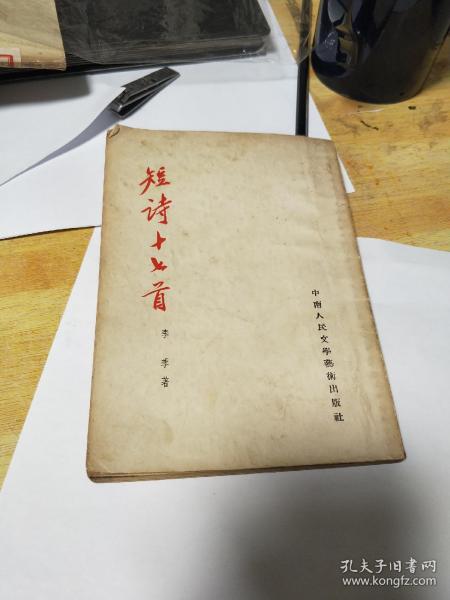 短詩十七首
李季著
中南人民文學藝術出版社
孔夫子旧书网
www.kongfz.com